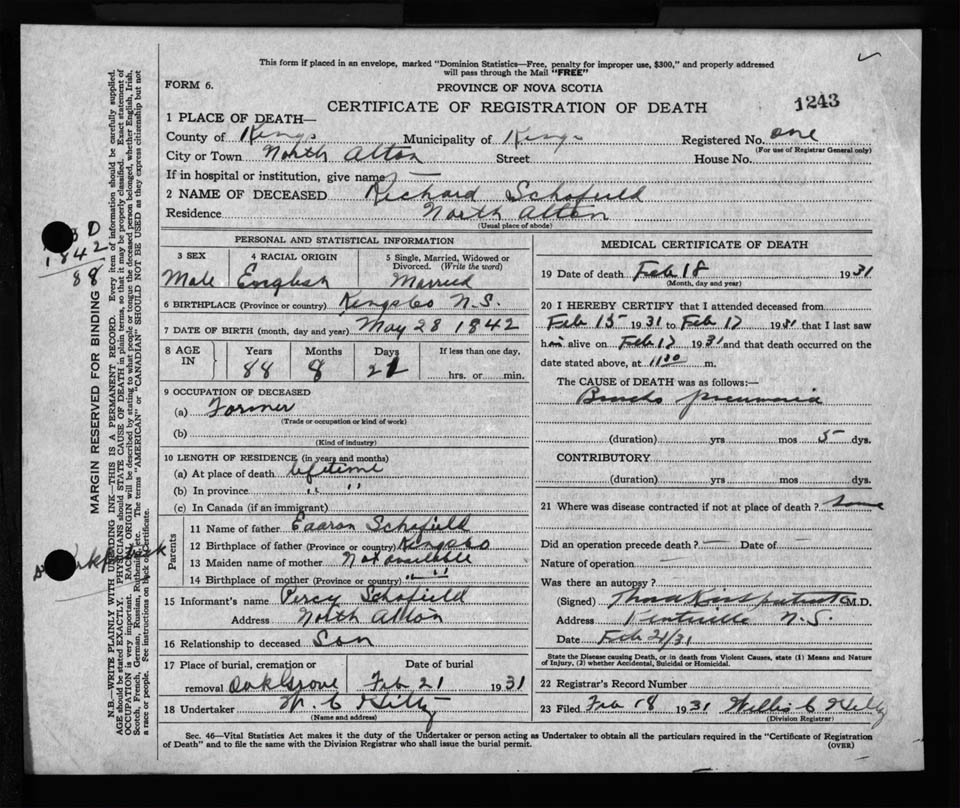 This form if placed in an envelope, marked "Dominion Statistics—Free, penalty for improper use, $300," and properly addressed
will pass through the Mail "FREE"
FORM 6.
PROVINCE OF NOVA SCOTIA
CERTIFICATE OF REGISTRATION OF DEATH
1243
1 PLACE OF DEATH—
County of Kings Municipality of Kings Registered No. one
(For use of Registrar General only)
City or Town North Alton Street House No.
If in hospital or institution, give name —
2 NAME OF DECEASED Richard Schofield
Residence North Alton
(Usual place of abode)
PERSONAL AND STATISTICAL INFORMATION
3 SEX 4 RACIAL ORIGIN 5 Single, Married, Widowed or Divorced. (Write the word)
Male English Married
6 BIRTHPLACE (Province or country) Kings Co N.S.
7 DATE OF BIRTH (month, day and year) May 28 1842
8 AGE IN Years Months Days If less than one day,
88 8 21 hrs. or min.
9 OCCUPATION OF DECEASED
(a) Farmer
(Trade or occupation or kind of work)
(b)
(Kind of industry)
10 LENGTH OF RESIDENCE (in years and months)
(a) At place of death lifetime
(b) In province " "
(c) In Canada (if an immigrant)
Parents
11 Name of father Eaaron Schofield
12 Birthplace of father (Province or country) Kings Co
13 Maiden name of mother Not available
14 Birthplace of mother (Province or country) " "
15 Informant's name Percy Schofield
Address North Alton
16 Relationship to deceased Son
17 Place of burial, cremation or removal Oak Grove Date of burial Feb 21 1931
18 Undertaker W. C Hiltz
(Name and address)
MEDICAL CERTIFICATE OF DEATH
19 Date of death Feb 18 1931
(Month, day and year)
20 I HEREBY CERTIFY that I attended deceased from
Feb 15 1931 to Feb 17 1931 that I last saw
him alive on Feb 17 1931 and that death occurred on the
date stated above, at 11 30 m.
The CAUSE OF DEATH was as follows:—
Broncho pneumonia
(duration) yrs mos 5 dys.
CONTRIBUTORY
(duration) yrs. mos. dys.
21 Where was disease contracted if not at place of death? Same
Did an operation precede death? — Date of —
Nature of operation —
Was there an autopsy?
(Signed) M.D.
Address Kentville N.S.
Date Feb 21/31
State the Disease causing Death, or in death from Violent Causes, state (1) Means and Nature
of Injury, (2) whether Accidental, Suicidal or Homicidal.
22 Registrar's Record Number
23 Filed Feb 18 1931 Willis C Hiltz
(Division Registrar)
Sec. 46—Vital Statistics Act makes it the duty of the Undertaker or person acting as Undertaker to obtain all the particulars required in the "Certificate of Registration
of Death" and to file the same with the Division Registrar who shall issue the burial permit.
(OVER)
MARGIN RESERVED FOR BINDING
N.B.—WRITE PLAINLY WITH UNFADING INK—THIS IS A PERMANENT RECORD. Every item of information should be carefully supplied.
AGE should be stated EXACTLY. PHYSICIANS should STATE CAUSE OF DEATH in plain terms, so that it may be properly classified. Exact statement of
OCCUPATION is very important. RACIAL ORIGIN will be described by stating to what people or tongue the deceased person belonged, whether English, Irish,
Scotch, French, German, Russian, Ruthenian, etc. The terms "AMERICAN" or "CANADIAN" SHOULD NOT BE USED as they express citizenship but not
a race or people. See instructions on back of Certificate.
D
1842
88